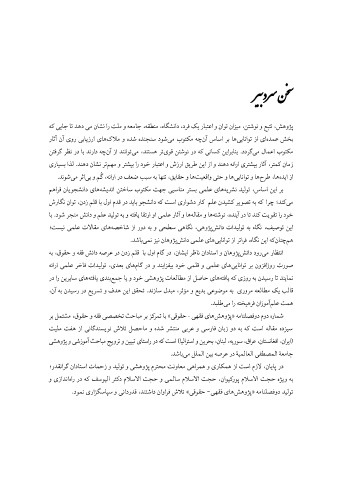 سخن سردبیر
پژوهش، تتبع و نوشتن، میزان توان و اعتبار یک فرد، دانشگاه، منطقه، جامعه و ملت را نشان می دهد تا جایی که
بخش عمده‌ای از توانایی‌ها بر اساس آن‌چه مکتوب می‌شود سنجیده شده و ملاک‌های ارزیابی روی آن آثار
مکتوب اعمال می‌گردد. بنابراین کسانی که در نوشتن قوی‌تر هستند، می‌توانند از آن‌چه دارند با در نظر گرفتن
زمان کمتر، آثار بیشتری ارائه دهند و از این طریق ارزش و اعتبار خود را بیشتر و مهم‌تر نشان دهند. لذا بسیاری
از ایده‌ها، طرح‌ها و توانایی‌ها و حتی واقعیت‌ها و حقایق، تنها به سبب ضعف در ارائه، گُم و بی‌اثر می‌شوند.
بر این اساس، تولید نشریه‌های علمی بستر مناسبی جهت مکتوب ساختن اندیشه‌های دانشجویان فراهم
می‌کند؛ چرا که به تصویر کشیدن علم کار دشواری است که دانشجو باید در قدم اول با قلم زدن، توان نگارش
خود را تقویت کند تا در آینده، نوشته‌ها و مقاله‌ها و آثار علمی او ارتقا یافته و به تولید علم و دانش منجر شود. با
این توصیف، نگاه به تولیدات دانش‌پژوهی، نگاهی سطحی و به دور از شاخصه‌های مقالات علمی نیست؛
همچنان‌که این نگاه، فراتر از توانایی‌های علمی دانش‌پژوهان نیز نمی‌باشد.
انتظار می‌رود دانش‌پژوهان و استادان ناظر ایشان، در گام اول با قلم زدن در عرصه دانش فقه و حقوق، به
صورت روزافزون بر توانایی‌های علمی و قلمی خود بیفزایند و در گام‌های بعدی، تولیدات فاخر علمی ارائه
نمایند تا روزی که یافته‌های حاصل از مطالعات پژوهشی خود و یا جمع‌بندی یافته‌های سایرین را در
قالب یک مطالعه مروری به موضوعی بدیع و مؤثر، مبدل سازند. تحقق این هدف و تسریع در رسیدن به آن،
همت علم‌آموزان فرهیخته را می‌طلبد.
شماره دوم دوفصلنامه «پژوهش‌های فقهی- حقوقی» با تمرکز بر مباحث تخصصی فقه و حقوق، مشتمل بر
سیزده مقاله است که به دو زبان فارسی و عربی منتشر شده و ماحصل تلاش نویسندگانی از هفت ملیت
(ایران، افغانستان، عراق، سوریه، لبنان، بحرین و استرالیا) است که در راستای تبیین و ترویج مباحث آموزشی و پژوهشی
جامعة المصطفی العالمیة در عرصه بین الملل می‌باشد.
در پایان، لازم است از همکاری و همراهی معاونت محترم پژوهشی و تولید و زحمات استادان گرانقدر؛
به ویژه حجت الاسلام پورکیوان، حجت الاسلام سالمی و حجت الاسلام دکتر الیوسف که در راه‌اندازی و
تولید دوفصلنامه «پژوهش‌های فقهی- حقوقی» تلاش فراوان داشتند، قدردانی و سپاسگزاری نمود.